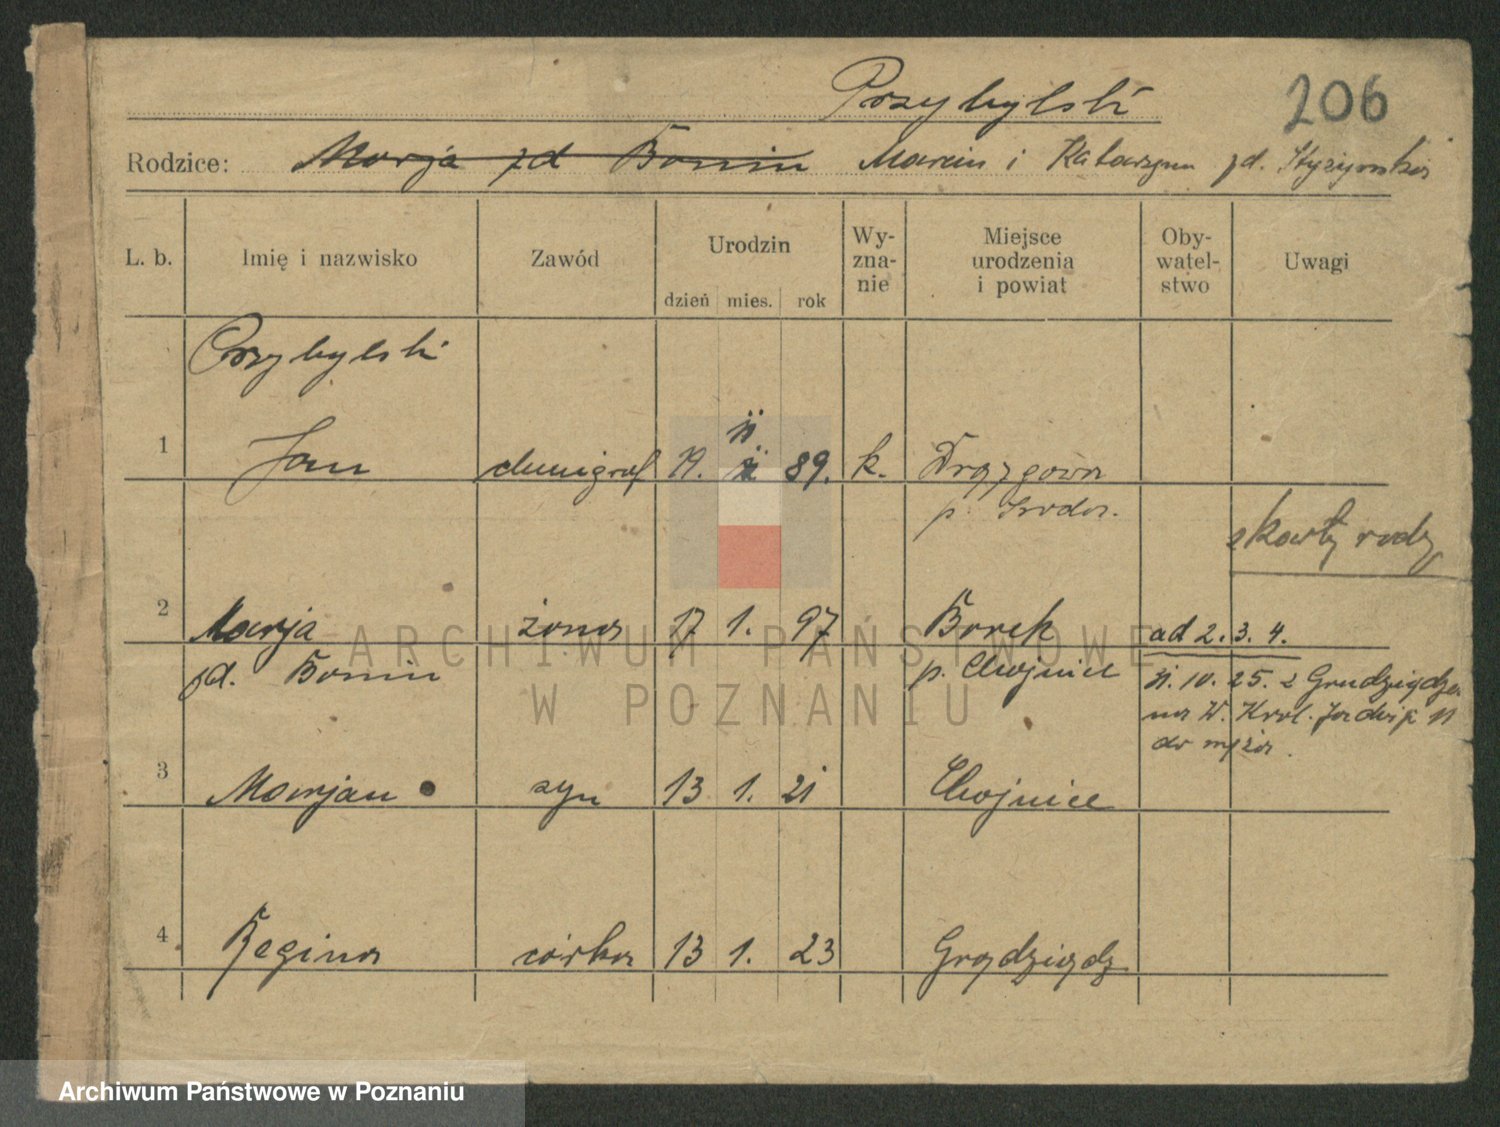 Przybylski
206
Rodzice: Marja zd Bonin Marcin i Katarzyna zd.
L. b. Imię i nazwisko Zawód Urodzin dzień mies. rok Wy-zna-nie Miejsce urodzenia i powiat Oby-watel-stwo Uwagi
Przybylski
1 Jan 89. k. Drązgowo
p. Środa.
z karty rodz
2 Marja żona 17 1. 97 Borek ad 2. 3. 4.
zd. Bonin p. Chojnice
10. 25. z Grudziądza
na W. Król. Jadwigi 11
do męża.
3 Marjan syn 13 1. 21 Chojnice
4 Regina córka 13 1. 23 Grudziądz
ARCHIWUM PAŃSTWOWE
W POZNANIU
Archiwum Państwowe w Poznaniu